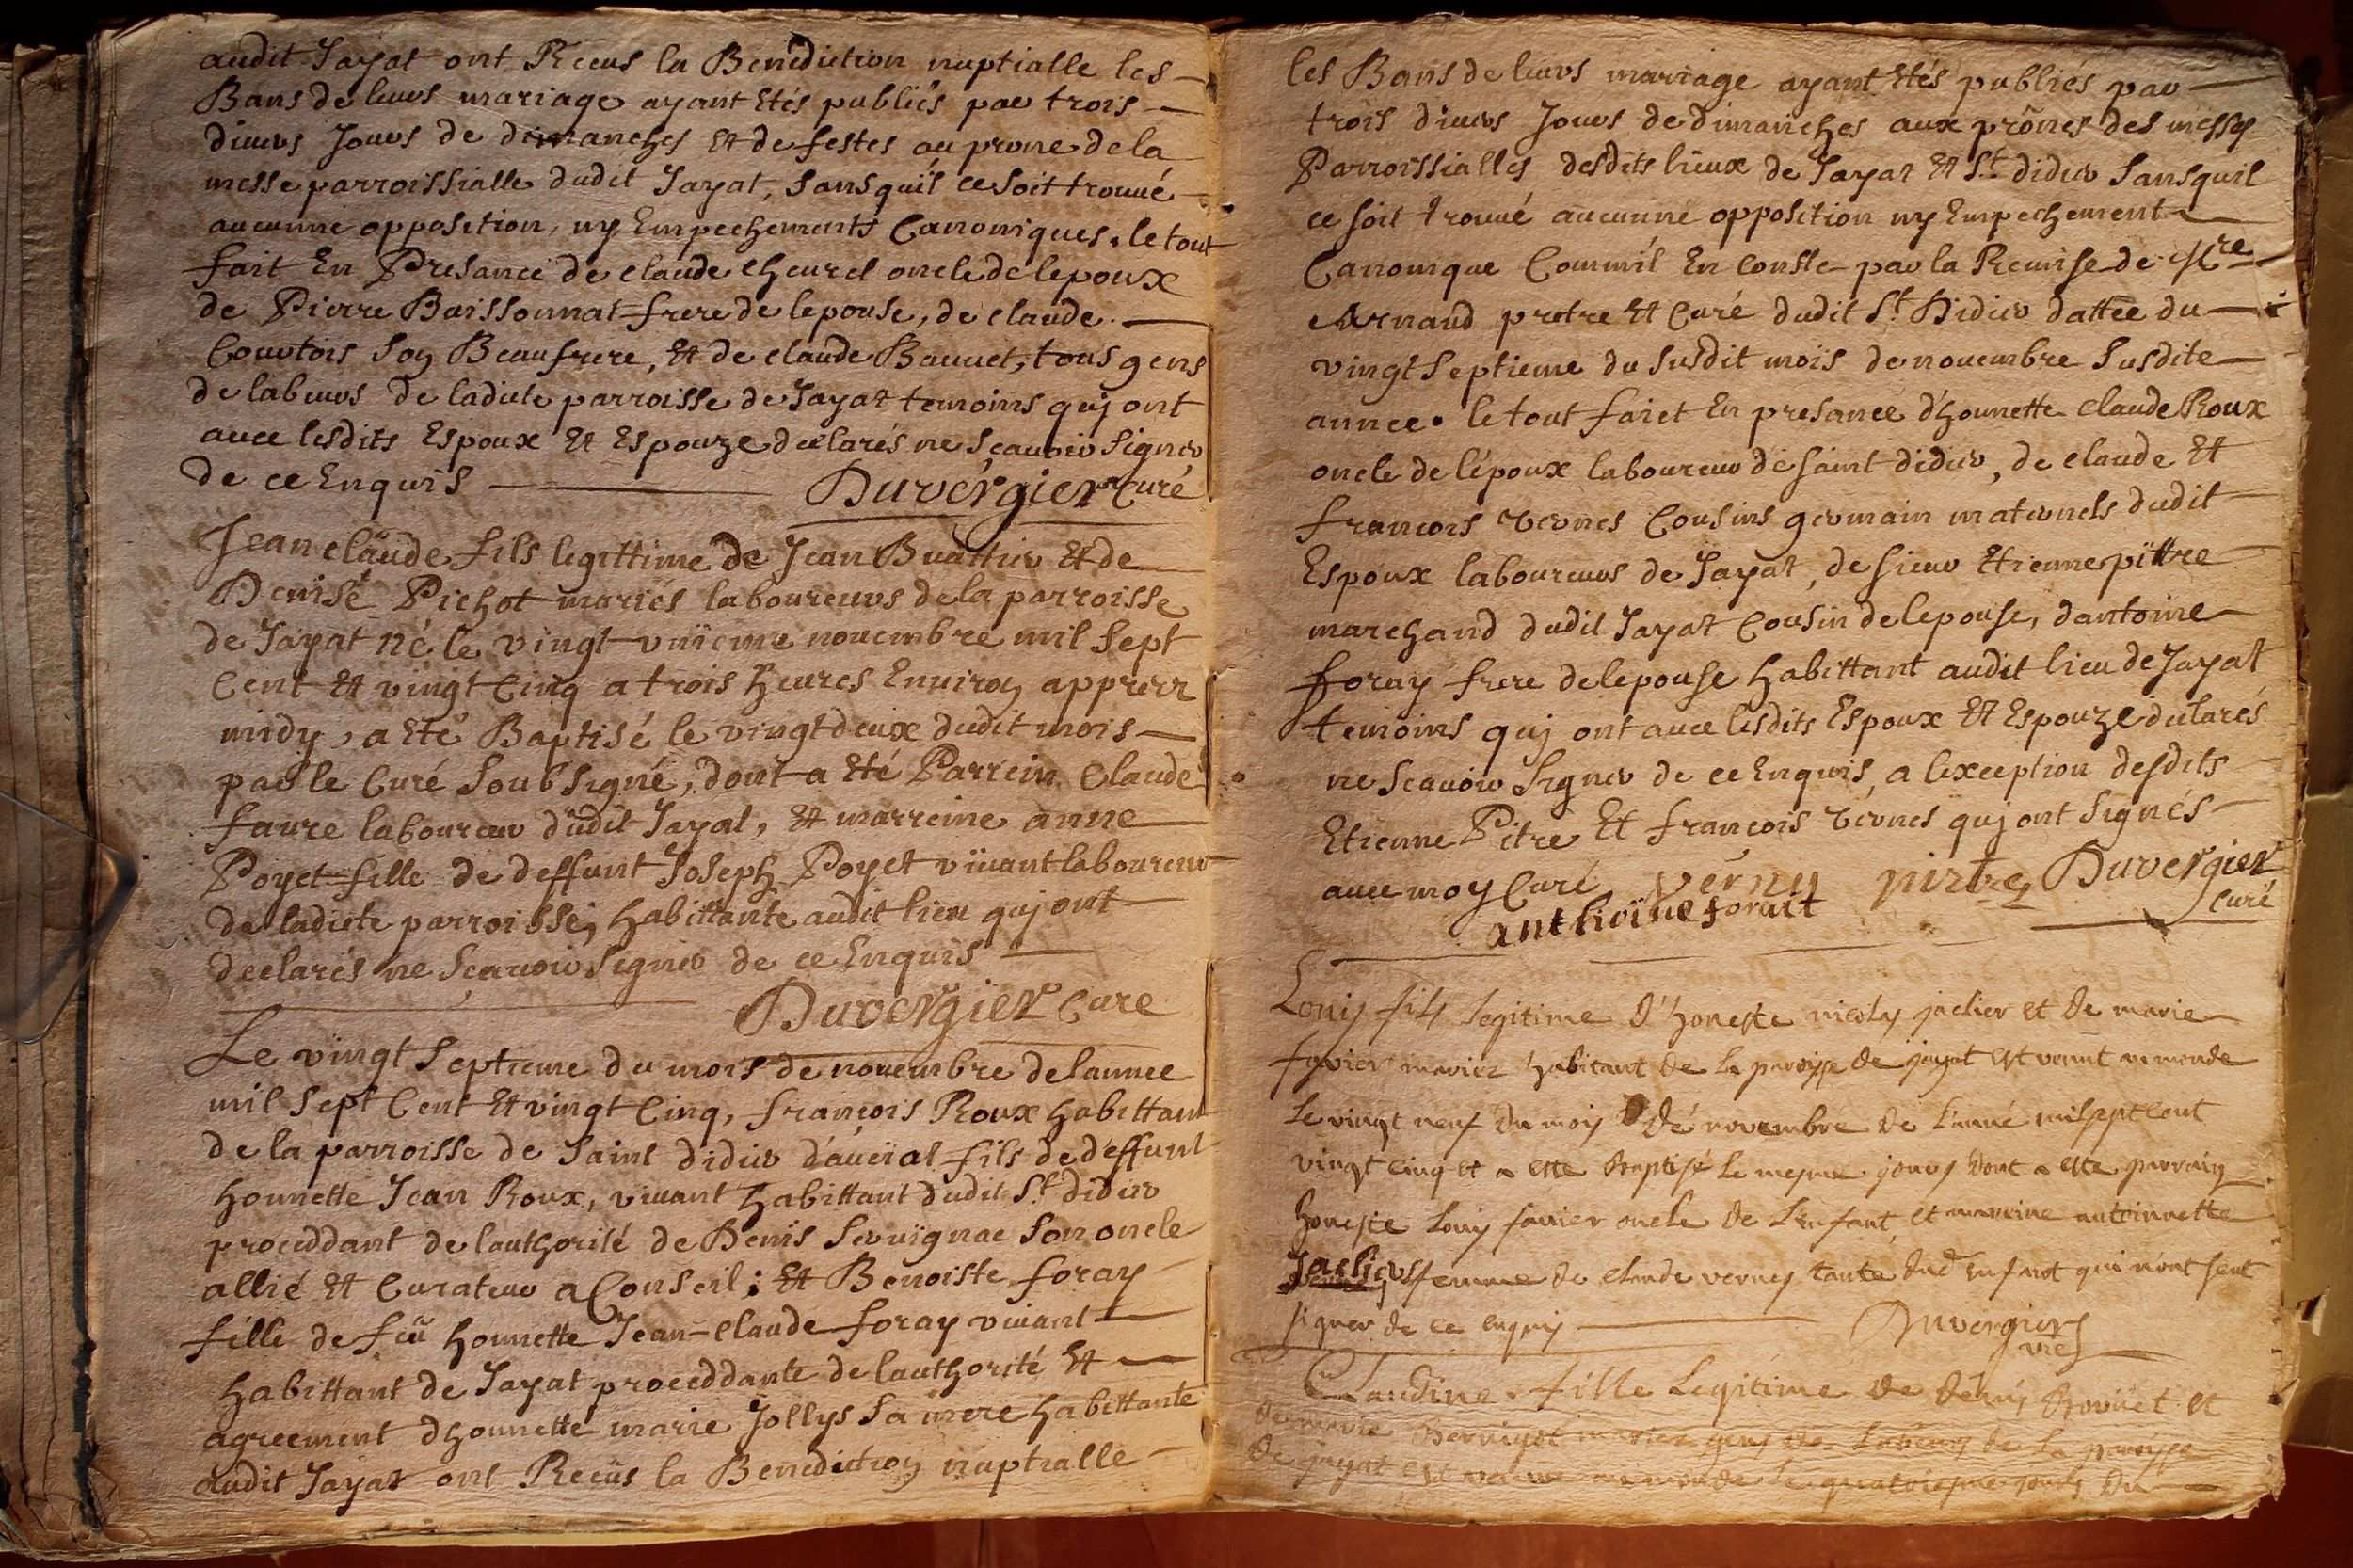 audit Jayat ont Receus la Benediction nuptialle les
Bans de leurs mariage ayant Etés publiés par trois
divers Jours de dimanches Et de festes au prone de la
messe parroissialle dudit Jayat, sans quil ce soit trouué
aucunne opposition, ny Empechements Canoniques. le tout
fait En Presance de claude cheurel oncle de lepoux
de Pierre Buissonnat frere de lepouse, de claude
Courtois son Beaufrere, Et de claude Bauuet, tous gens
de labeurs de ladicte parroisse de Jayat temoins quj ont
auec lesdits Espoux Et Espouze declarés ne scauoir signer
de ce Enquis Duvergier Curé
Jean claude fils legittime de Jean Buattier Et de
Denise Pichot mariés laboureurs de la parroisse
de Jayat né le vingt vniemme nouembre mil sept
Cent Et vingt Cinq a trois heures Enuiron apprez
midy, a Eté Baptisé le vingt deux dudit mois
par le Curé soubsigné, dont a Eté Parrein Claude
faure laboureur dudit Jayat, Et marreine anne
Poyet fille de deffunt Joseph Poyet viuant laboureur
de ladicte parroisse, habittante audit lieu quj ont
declarés ne scauoir signer de ce Enquis
Duvergier Curé
Le vingt septieme du mois de nouembre de lannee
mil sept Cent Et vingt Cinq, françois Roux habittant
de la parroisse de saint didier d'aueiat fils de deffunt
honnette Jean Roux, viuant habittant dudit St didier
proceddant de lauthorité de Denis seruignac son oncle
allié Et Curateur a Conseil; Et Benoiste foray
fille de feu honnette Jean-claude foray viuant
habittant de Jayat proceddante de lauthorité Et
agreement dhonnette marie Jollys sa mere habittante
audit Jayat ont Receüs la Benediction nuptialle
les Bans de leurs mariage ayant Etés publiés par
trois divers Jours de dimanches aux prônes des messes
Parroissialles desdits lieux de Jayat Et St didier sans quil
ce soit trouué aucunne opposition ny Empechement
Canonique Comm'il En conste par la Remise de Mre
Arnaud pretre Et Curé dudit St Didier dattée du
vingt septieme du susdit mois de nouembre susdite
annee. le tout faict En presance d'honnette claude Roux
oncle de l'époux laboureur de saint didier, de claude Et
francois vernes Cousins germain maternels dudit
Espoux laboureurs de Jayat, de sieur Etienne pittre
marchand dudit Jayat Cousin de lepouse, dantoine
foray frere de lepouse habittant audit lieu de Jayat
temoins quj ont auec lesdits Espoux Et Espouze declarés
ne scauoir signer de ce Enquis, a lexception desdits
Etienne Pitre Et françois vernes quj ont signés
auec moy Curé verny pirtre Duvergier
Curé
anthoine foruit
Louis fils legitime d'honeste nicolas jaclier et de marie
favier mariez habitant de la paroisse de jayat est venut au monde
le vingt neuf du mois de novembre de l'anné mil sept cent
vingt cinq et a esté Baptisé le mesme jours dont a esté parrain
honeste Louis favier oncle de l'enfant, et marreine antoinnette
Jacliers femme de claude verney tante dud enfant qui n'ont seut
signer de ce enquis Duvergier
vic
Claudine fille Legitime de denis Bovüet et
de marie mariez gens de Labeurs de La paroisse
de jayat est venue au monde le quatriesme jours du